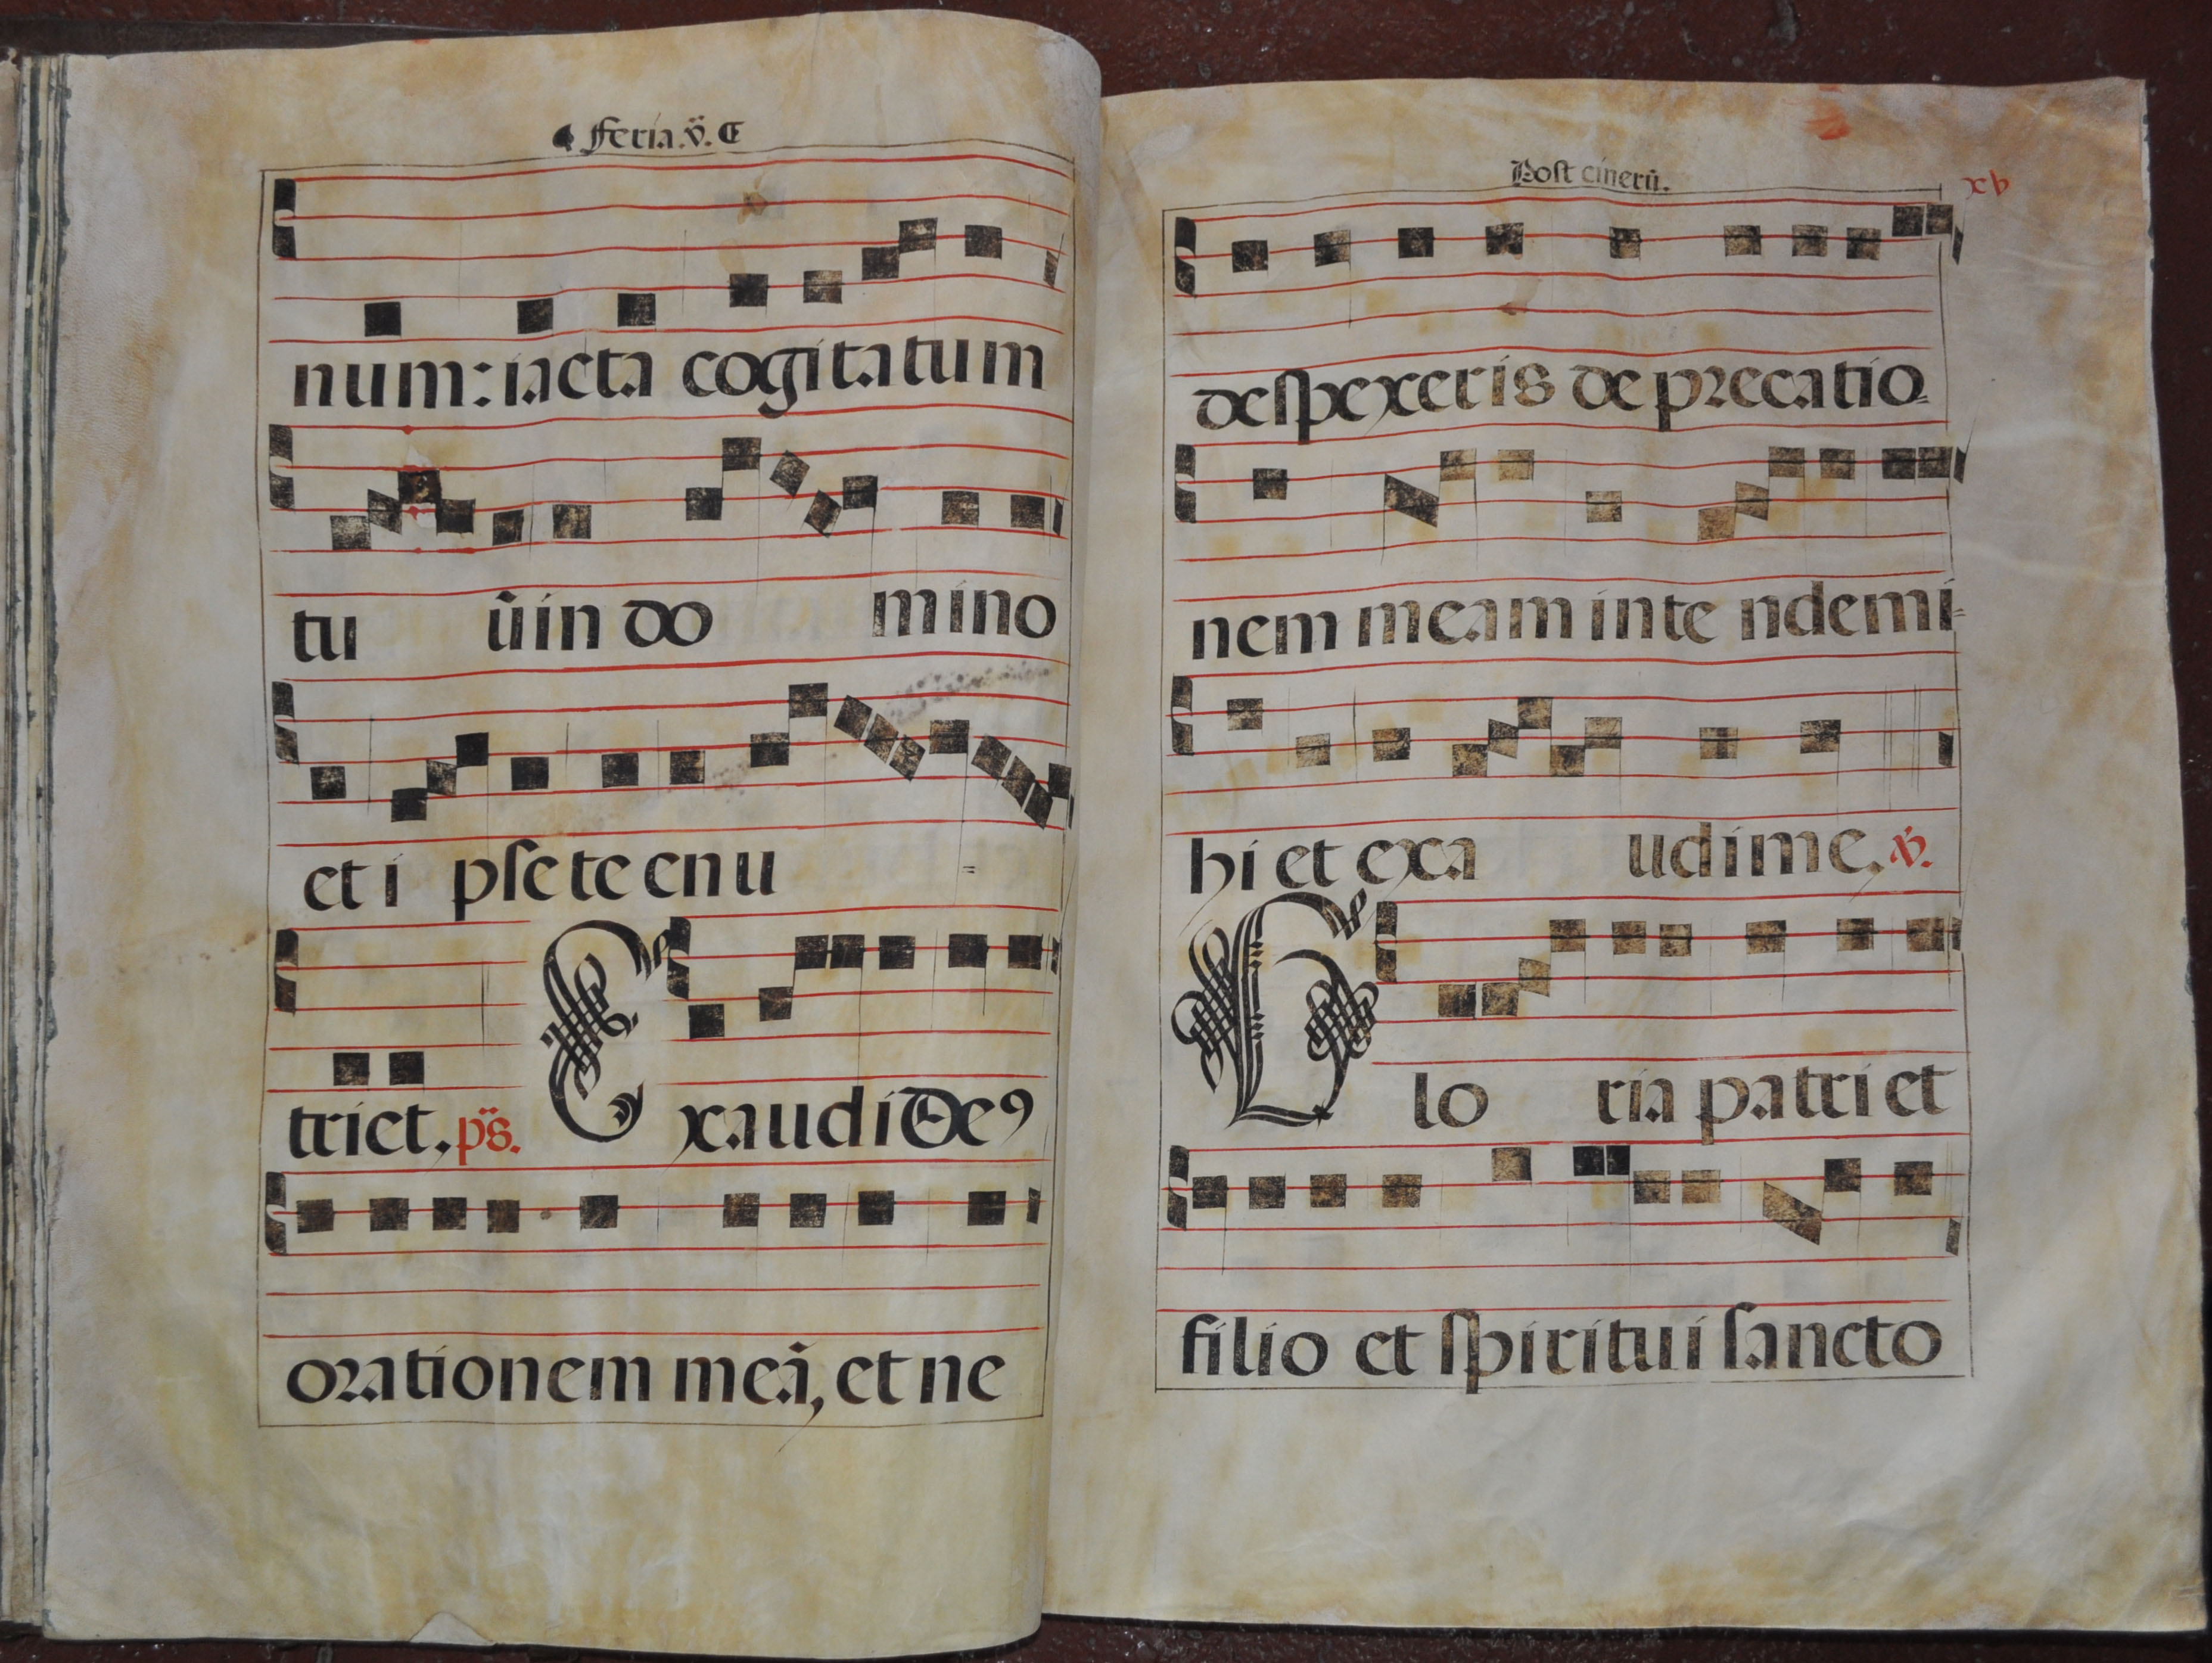 feria.v.
num: iacta cogitatum
tu ũ in do mino
et i pse te enu
triet. ps.
Exaudi De9
orationem meã, et ne
Post cinerũ.
xv
despexeris deprecatio
nem meam inte nde mi
hi et exa udi me. v.
Glo ria patri et
filio et spiritui sancto